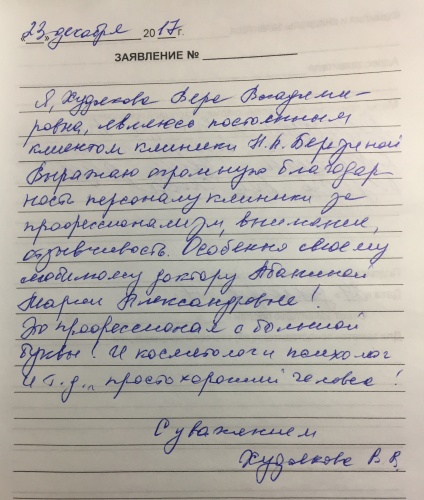 «23» декабря 2017г.
ЗАЯВЛЕНИЕ №
Я, Худякова Вера Владими-
ровна, являюсь постоянным
клиентом клиники Н.А. Березиной
Выражаю огромную благодар
ность персоналу клиники за
профессионализм, внимание,
отзывчивость. Особенно своему
любимому доктору Абаниной
Марии Александровне!
Это профессионал с большой
буквы! И косметолог и психолог
и т.д... просто хороший человек!
С уважением
Худякова В.В.